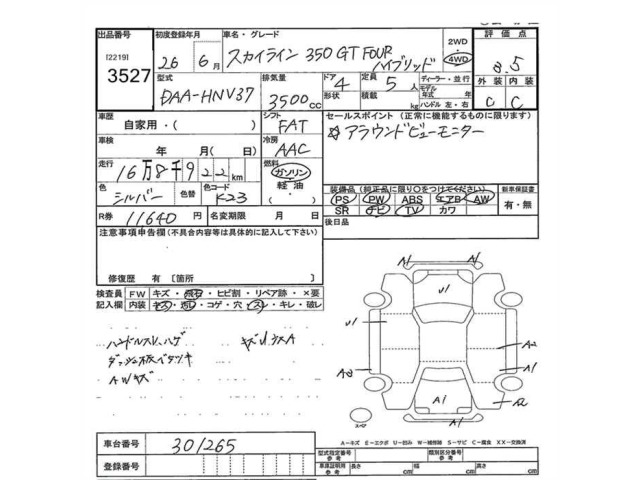 出品番号 初度登録年月 車名・グレード 2WD 評価点
[2219] 26年 6月 スカイライン 350GT FOUR ハイブリッド 4WD 3.5
3527 型式 排気量 ドア 4 定員 5人 ディーラー・並行 外装 内装
DAA-HNV37 3500cc 形状 積載 kg モデル年式 年 ハンドル 左・右 C C
車歴 自家用・( ) シフト FAT セールスポイント(正常に機能するものに限ります)
車検 年 月(日) 冷房 AAC ☆アラウンドビューモニター
走行 16万8千922km 燃料 ガソリン
色 シルバー 色コード K23 軽油 装備品(純正品に限り〇をつけてください) 新車保証書
PS PW ABS エアB AW 有・無
R券 11640円 名変期限 月 日 SR ナビ TV カワ
注意事項申告欄(不具合内容等は具体的に記入して下さい) 後日品
修復歴 有〔箇所 〕
検査員 FW キズ・飛石・ヒビ割・リペア跡・×要
記入欄 内装 キズ・汚・コゲ・穴・スレ・キレ・破レ
ハンドルスレ、ハゲ
ダッシュ板ベタツキ
AWキズ
A1 A1
U1
A2
A1
A1
A2
A1
スペア
A-キズ E-エクボ U-凹み W-補修跡 S-サビ C-腐食 XX-交換済
車台番号 301265 型式指定番号 参考 類別区分番号 参考
登録番号 車庫証明用 参考 長さ cm 幅 cm 高さ cm